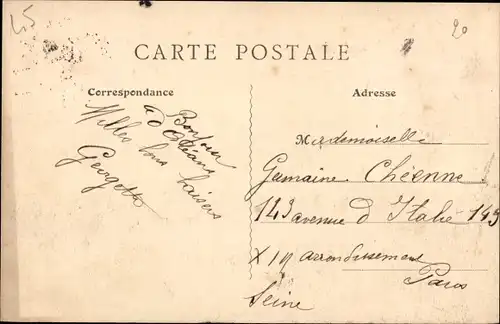 45
20
CARTE POSTALE
Correspondance
Adresse
Bonjour
d'Orléans
Milles bons baisers
Georgette
Mademoiselle
Germaine Chéenne
143 avenue d Italie 143
XIII arrondissement
Paris
Seine